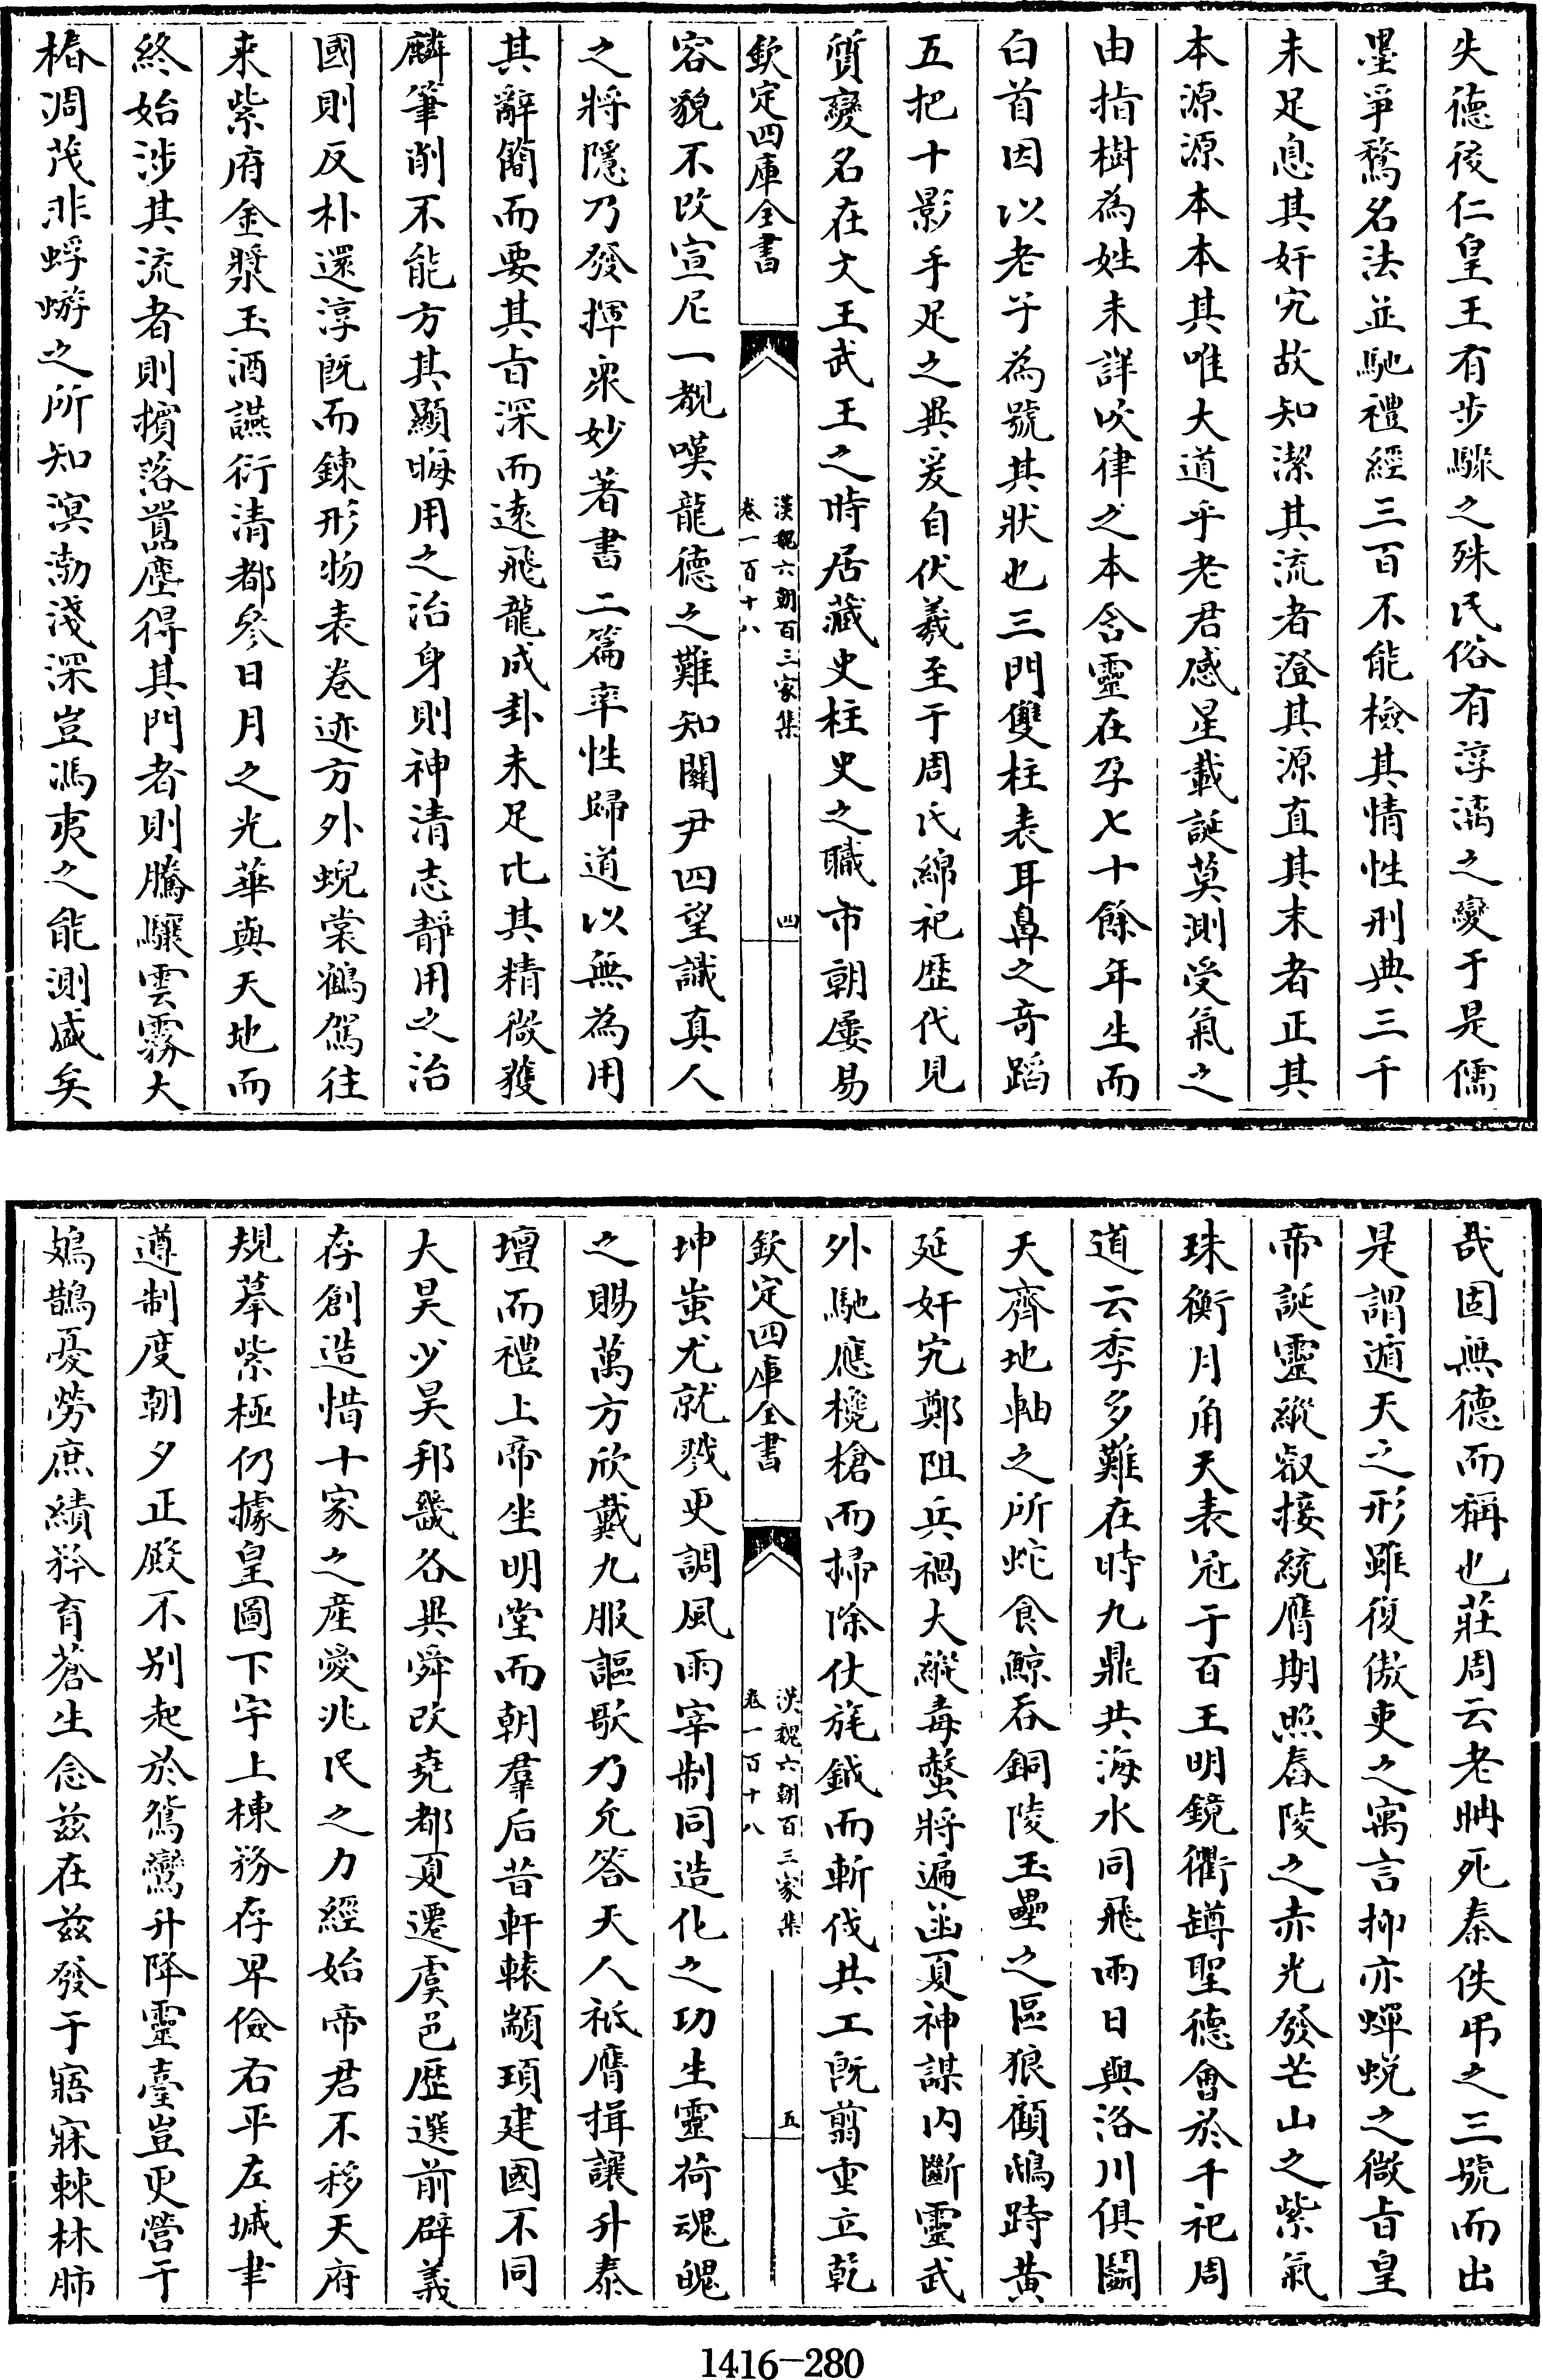 失德後仁皇王有步驟之殊民俗有淳漓之變于是儒
墨爭騖名法並馳禮經三百不能檢其情性刑典三千
未足息其奸宄故知潔其流者澄其源直其末者正其
本源源本本其唯大道乎老君感星載誕莫測受氣之
由指樹為姓未詳吹律之本含靈在孕七十餘年生而
白首因以老子為號其狀也三門雙柱表耳鼻之奇蹈
五把十影手足之異爰自伏羲至于周氏綿祀歷代見
質變名在文王武王之時居藏史柱史之職市朝屢易
欽定四庫全書
漢魏六朝百三家集
卷一百十八
四
容貌不改宣尼一覩嘆龍德之難知關尹四望識真人
之將隱乃發揮衆妙著書二篇率性歸道以無為用
其辭簡而要其旨深而遠飛龍成卦未足比其精微獲
麟筆削不能方其顯晦用之治身則神清志靜用之治
國則反朴還淳既而鍊形物表卷迹方外蜺裳鶴駕往
来紫府金漿玉酒讌衍清都參日月之光華與天地而
終始涉其流者則擯落囂塵得其門者則騰驤雲霧大
椿凋茂非蜉蝣之所知溟渤淺深豈馮夷之能測盛矣
哉固無德而稱也莊周云老聃死秦佚弔之三號而出
是謂遁天之形雖復傲吏之寓言抑亦蟬蛻之微旨皇
帝誕靈縱叡接統膺期照舂陵之赤光發芒山之紫氣
珠衡月角天表冠于百王明鏡衢罇聖德會於千祀周
道云季多難在時九鼎共海水同飛雨日與洛川俱鬭
天齊地軸之所蛇食鯨吞銅陵玉壘之區狼顧鴟跱黄
延奸宄鄭阻兵禍大縱毒螫將遍函夏神謀内斷靈武
外馳應欃槍而掃除仗旄鉞而斬伐共工既翦重立乾
欽定四庫全書
漢魏六朝百三家集
卷一百十八
五
坤蚩尤就戮更調風雨宰制同造化之功生靈荷魂魄
之賜萬方欣戴九服謳歌乃允答天人祗膺揖讓升泰
壇而禮上帝坐明堂而朝羣后昔軒轅顓頊建國不同
大昊少昊邦畿各異舜改堯都夏遷虞邑歷選前辟義
存創造惜十家之產愛兆民之力經始帝君不移天府
規摹紫極仍據皇圖下宇上棟務存卑儉右平左墄聿
遵制度朝夕正殿不别起於鴛鸞升降靈臺豈更營于
鳷鵲憂勞庶績矜育蒼生念兹在兹發于寤寐棘林肺
1416-280